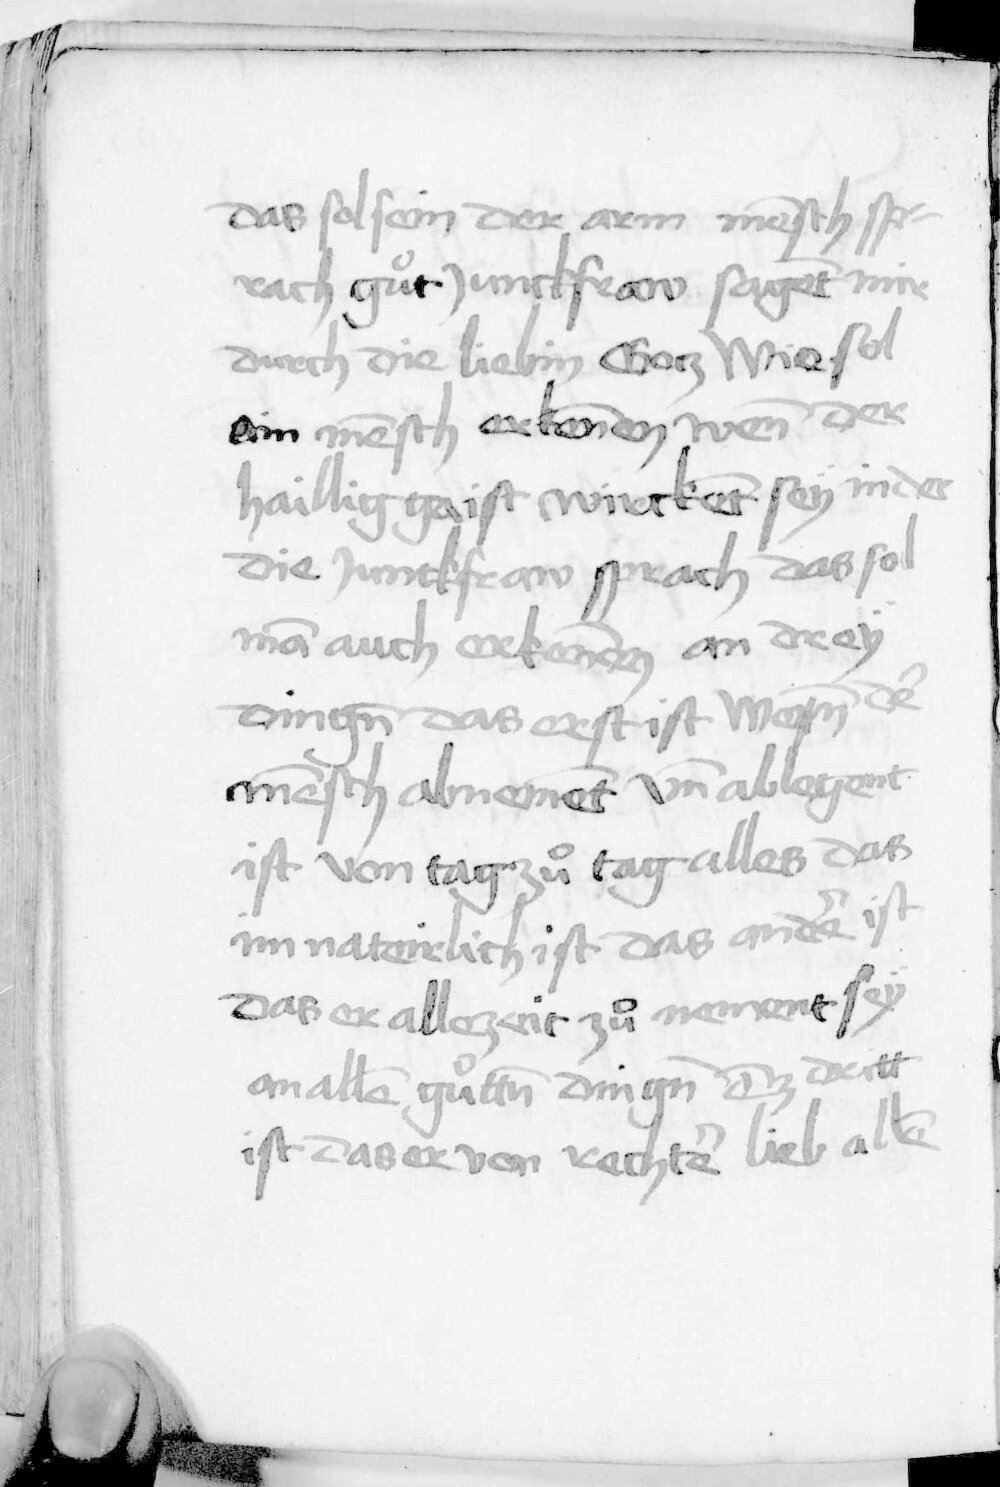 das sol sein der arm mēsch spr-
rach gůt Junckfraw sagēt mir
durch die liebin Gotz Wie sol
ein mēsch erkēnen wen̄ der
haillig gaist wirckēt seÿ in der
die Junckfraw sprach das sol
mā auch erkēnen an dreÿ
dingn̄ das erst ist Wen̄ dē
mēsch abnemēt vn̄ ablegent
ist von tag zů tag alles das
im nateirlich ist das andrē ist
das er allezeit zů nement seÿ
an allē gůttn̄ dingn̄ dritt
ist das er von rechtē lieb allē